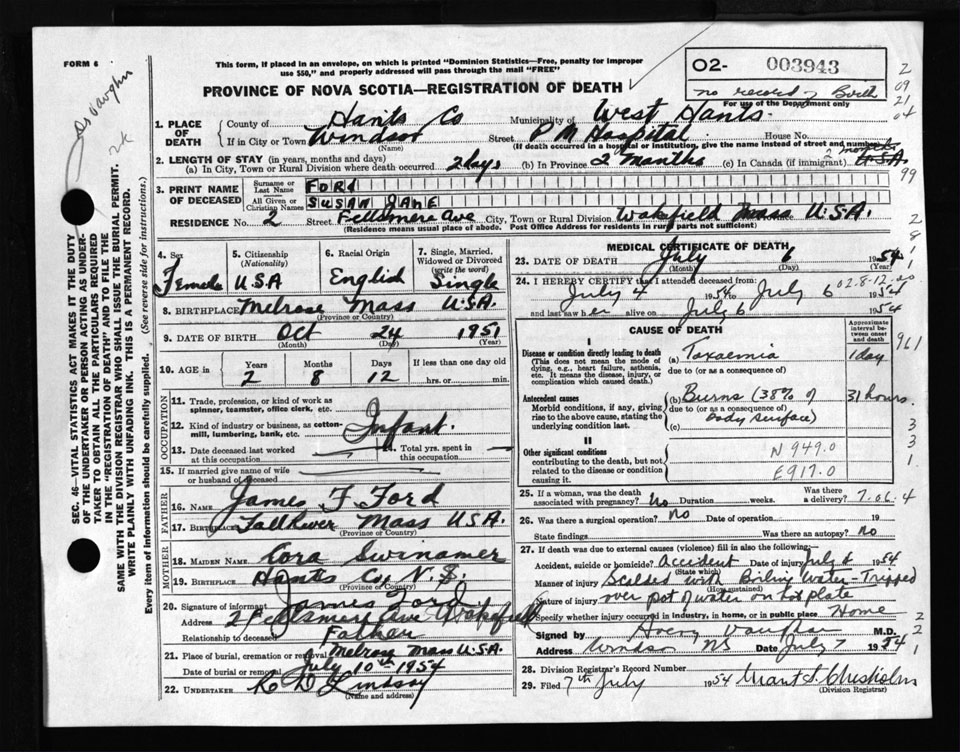 FORM 6
This form, if placed in an envelope, on which is printed "Dominion Statistics—Free, penalty for improper
use $50," and properly addressed will pass through the mail "FREE"
O2- 003943
no record of Birth
For use of the Department only
PROVINCE OF NOVA SCOTIA—REGISTRATION OF DEATH
1. PLACE OF DEATH
County of Hants Co Municipality of West Hants
If in City or Town Windsor Street P M Hospital House No.
(Name) (If death occurred in hospital or institution, give the name instead of street and number)
2. LENGTH OF STAY (in years, months and days)
(a) In City, Town or Rural Division where death occurred 2 days (b) In Province 2 Months (c) In Canada (if immigrant) 2 months U.S.A.
3. PRINT NAME OF DECEASED
Surname or Last Name FORD
All Given or Christian Names SUSAN JANE
RESIDENCE No. 2 Street Fellsmere Ave City, Town or Rural Division Wakefield Mass U.S.A.
(Residence means usual place of abode. Post Office Address for residents in rural parts not sufficient)
4. Sex Female
5. Citizenship (Nationality) U S A
6. Racial Origin English
7. Single, Married, Widowed or Divorced (write the word) Single
8. BIRTHPLACE Melrose Mass U.S.A.
(Province or Country)
9. DATE OF BIRTH Oct 24 1951
(Month) (Day) (Year)
10. AGE in Years 2 Months 8 Days 12 If less than one day old
hrs. or min.
OCCUPATION
11. Trade, profession, or kind of work as spinner, teamster, office clerk, etc.
12. Kind of industry or business, as cotton-mill, lumbering, bank, etc. Infant
13. Date deceased last worked at this occupation
14. Total yrs. spent in this occupation
15. If married give name of wife or husband of deceased
FATHER
16. NAME James F Ford
17. BIRTHPLACE Fall River Mass U.S.A.
(Province or Country)
MOTHER
18. MAIDEN NAME Cora Swinamer
19. BIRTHPLACE Hants Co, N.S.
(Province or Country)
20. Signature of informant James Ford
Address 2 Fellsmere Ave Wakefield
Relationship to deceased Father
21. Place of burial, cremation or removal Melrose Mass U.S.A.
Date of burial or removal July 10th 1954
22. UNDERTAKER C D Lindsay
(Name and address)
MEDICAL CERTIFICATE OF DEATH
23. DATE OF DEATH July 6 1954
(Month) (Day) (Year)
24. I HEREBY CERTIFY that I attended deceased from:
July 4 1954 to July 6 1954
and last saw her alive on July 6 1954
CAUSE OF DEATH
Approximate interval between onset and death
I
Disease or condition directly leading to death (a) Toxaemia 1 day
(This does not mean the mode of dying, e.g., heart failure, asthenia, etc. It means the disease, injury, or complication which caused death.)
due to (or as a consequence of)
Antecedent causes (b) Burns (38% of body surface) 31 hours
Morbid conditions, if any, giving rise to the above cause, stating the underlying condition last.
due to (or as a consequence of)
(c)
II
Other significant conditions
contributing to the death, but not related to the disease or condition causing it.
N 949.0
E 917.0
25. If a woman, was the death associated with pregnancy? No Duration weeks. Was there a delivery? 7.06.4
26. Was there a surgical operation? No Date of operation 19
State findings Was there an autopsy? No
27. If death was due to external causes (violence) fill in also the following—
Accident, suicide or homicide? Accident Date of injury July 4 1954
(State which)
Manner of injury Scalded with Boiling Water - Tripped
(How sustained)
Nature of injury over pot of water on hot plate
Specify whether injury occurred in industry, in home, or in public place Home
Signed by Avery Vaughan M.D.
Address Windsor NS Date July 7 1954
28. Division Registrar's Record Number
29. Filed 7th July 1954 Grant S. Chisholm
(Division Registrar)
SEC. 46—VITAL STATISTICS ACT MAKES IT THE DUTY
OF THE UNDERTAKER OR PERSON ACTING AS UNDER-
TAKER TO OBTAIN ALL THE PARTICULARS REQUIRED
IN THE "REGISTRATION OF DEATH" AND TO FILE THE
SAME WITH THE DIVISION REGISTRAR WHO SHALL ISSUE THE BURIAL PERMIT.
WRITE PLAINLY WITH UNFADING INK. THIS IS A PERMANENT RECORD.
Every item of information should be carefully supplied. (See reverse side for instructions.)